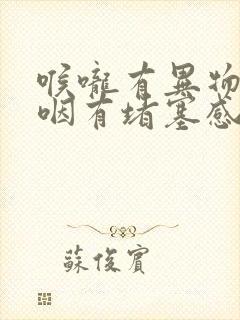 喉嚨有異物
咽有堵塞感
蘇俊賓